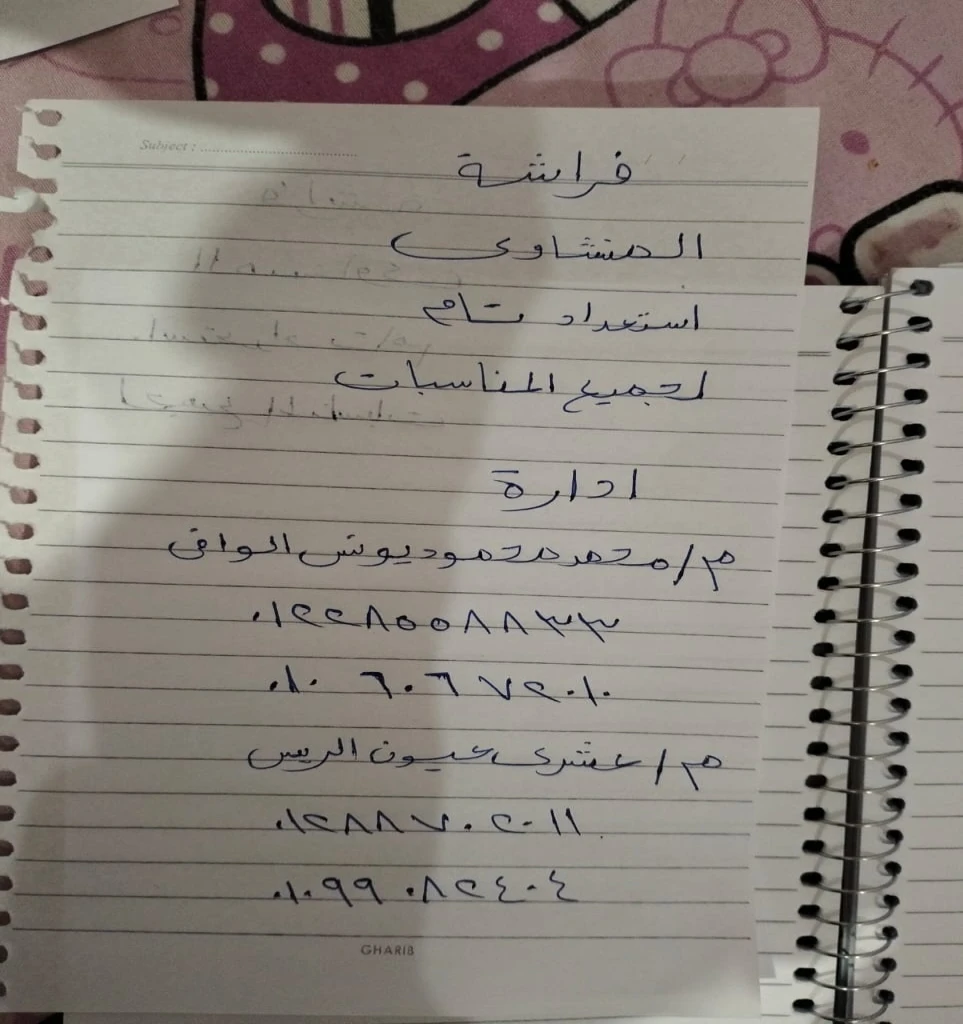 Subject :
فراشة
المنشاوى
استعداد تام
لجميع المناسبات
ادارة
م/محمد محمود يونس الوافى
٠١٢٢٨٥٥٨٨٣٣
٠١٠ ٦٠٦ ٧٢٠١٠
م/عشرى عيون الريس
٠١٢٨٨٧٠٢٠١١
٠١٠٩٩٠٨٢٤٠٤
GHARIB